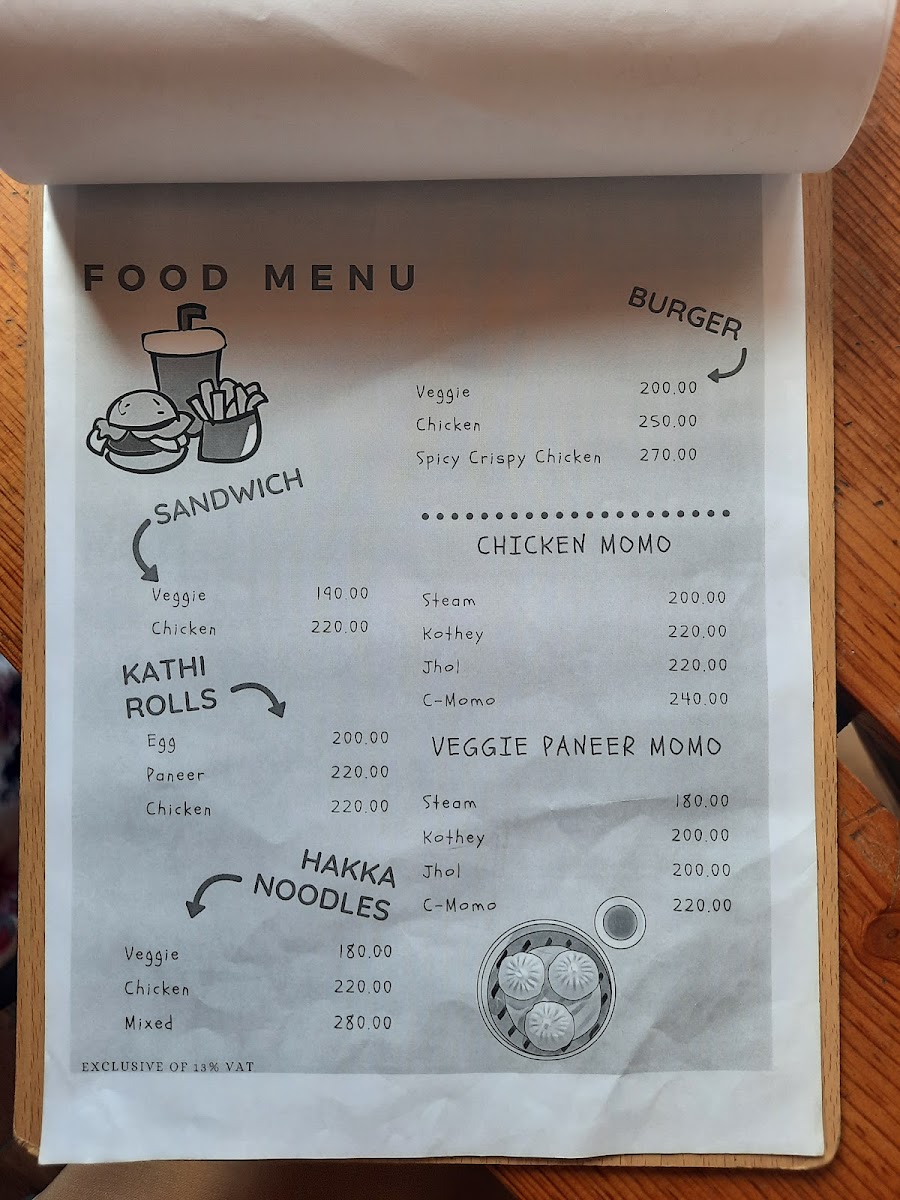 FOOD MENU
SANDWICH
Veggie 190.00
Chicken 220.00
KATHI
ROLLS
Egg 200.00
Paneer 220.00
Chicken 220.00
HAKKA
NOODLES
Veggie 180.00
Chicken 220.00
Mixed 280.00
EXCLUSIVE OF 13% VAT
BURGER
Veggie 200.00
Chicken 250.00
Spicy Crispy Chicken 270.00
CHICKEN MOMO
Steam 200.00
Kothey 220.00
Jhol 220.00
C-Momo 240.00
VEGGIE PANEER MOMO
Steam 180.00
Kothey 200.00
Jhol 200.00
C-Momo 220.00